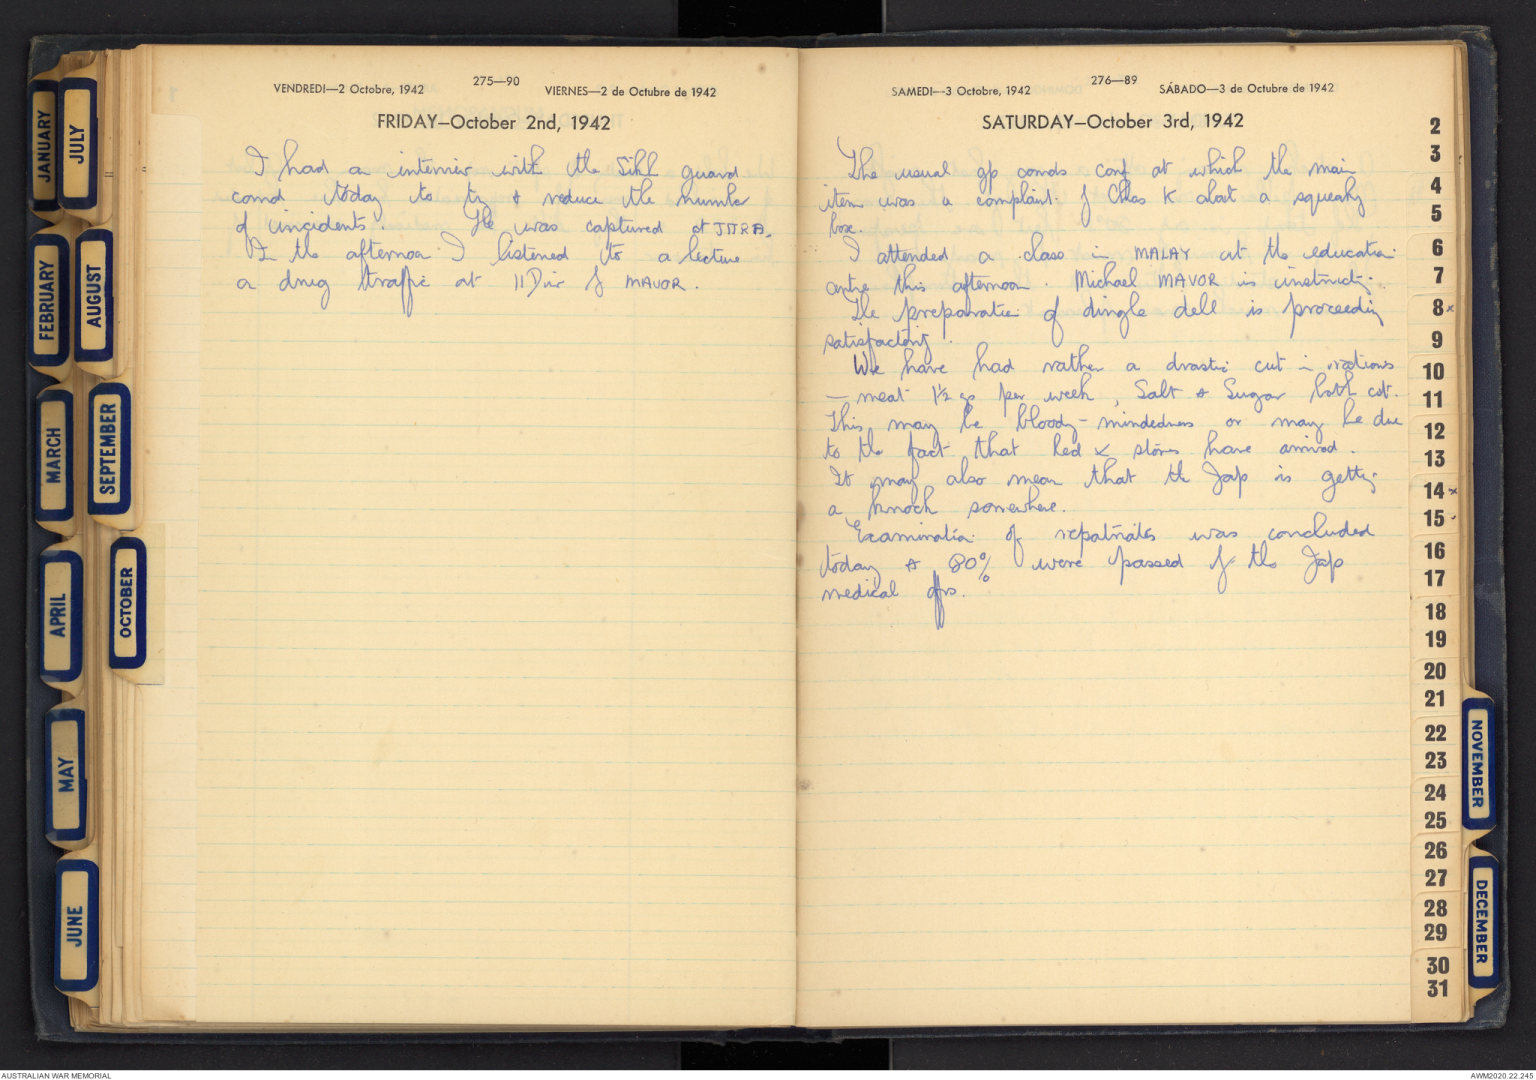 VENDREDI—2 Octobre, 1942
275—90
VIERNES—2 de Octubre de 1942
FRIDAY—October 2nd, 1942
I had an interview with the Sikh guard
comd today to try & reduce the number
of incidents. He was captured at JITRA.
In the afternoon I listened to a lecture
on drug traffic at 11 Div by MAVOR.
SAMEDI—3 Octobre, 1942
276—89
SÁBADO—3 de Octubre de 1942
SATURDAY—October 3rd, 1942
The usual gp comds conf at which the main
item was a complaint by Chas K about a squeaky
box.
I attended a class in MALAY at the education
centre this afternoon. Michael MAVOR is instructing.
The preparation of dingle dell is proceeding
satisfactorily.
We have had rather a drastic cut in rations
— meat 1½ ozs per week, Salt & Sugar both cut.
This may be bloody-mindedness or may be due
to the fact that Red X stores have arrived.
It may also mean that the Jap is getting
a knock somewhere.
Examination of repatriates was concluded
today & 80% were passed by the Jap
medical offrs.
JANUARY
JULY
FEBRUARY
AUGUST
MARCH
SEPTEMBER
APRIL
OCTOBER
MAY
JUNE
2
3
4
5
6
7
8x
9
10
11
12
13
14x
15
16
17
18
19
20
21
22
23
24
25
26
27
28
29
30
31
NOVEMBER
DECEMBER
AUSTRALIAN WAR MEMORIAL
AWM2020.22.245